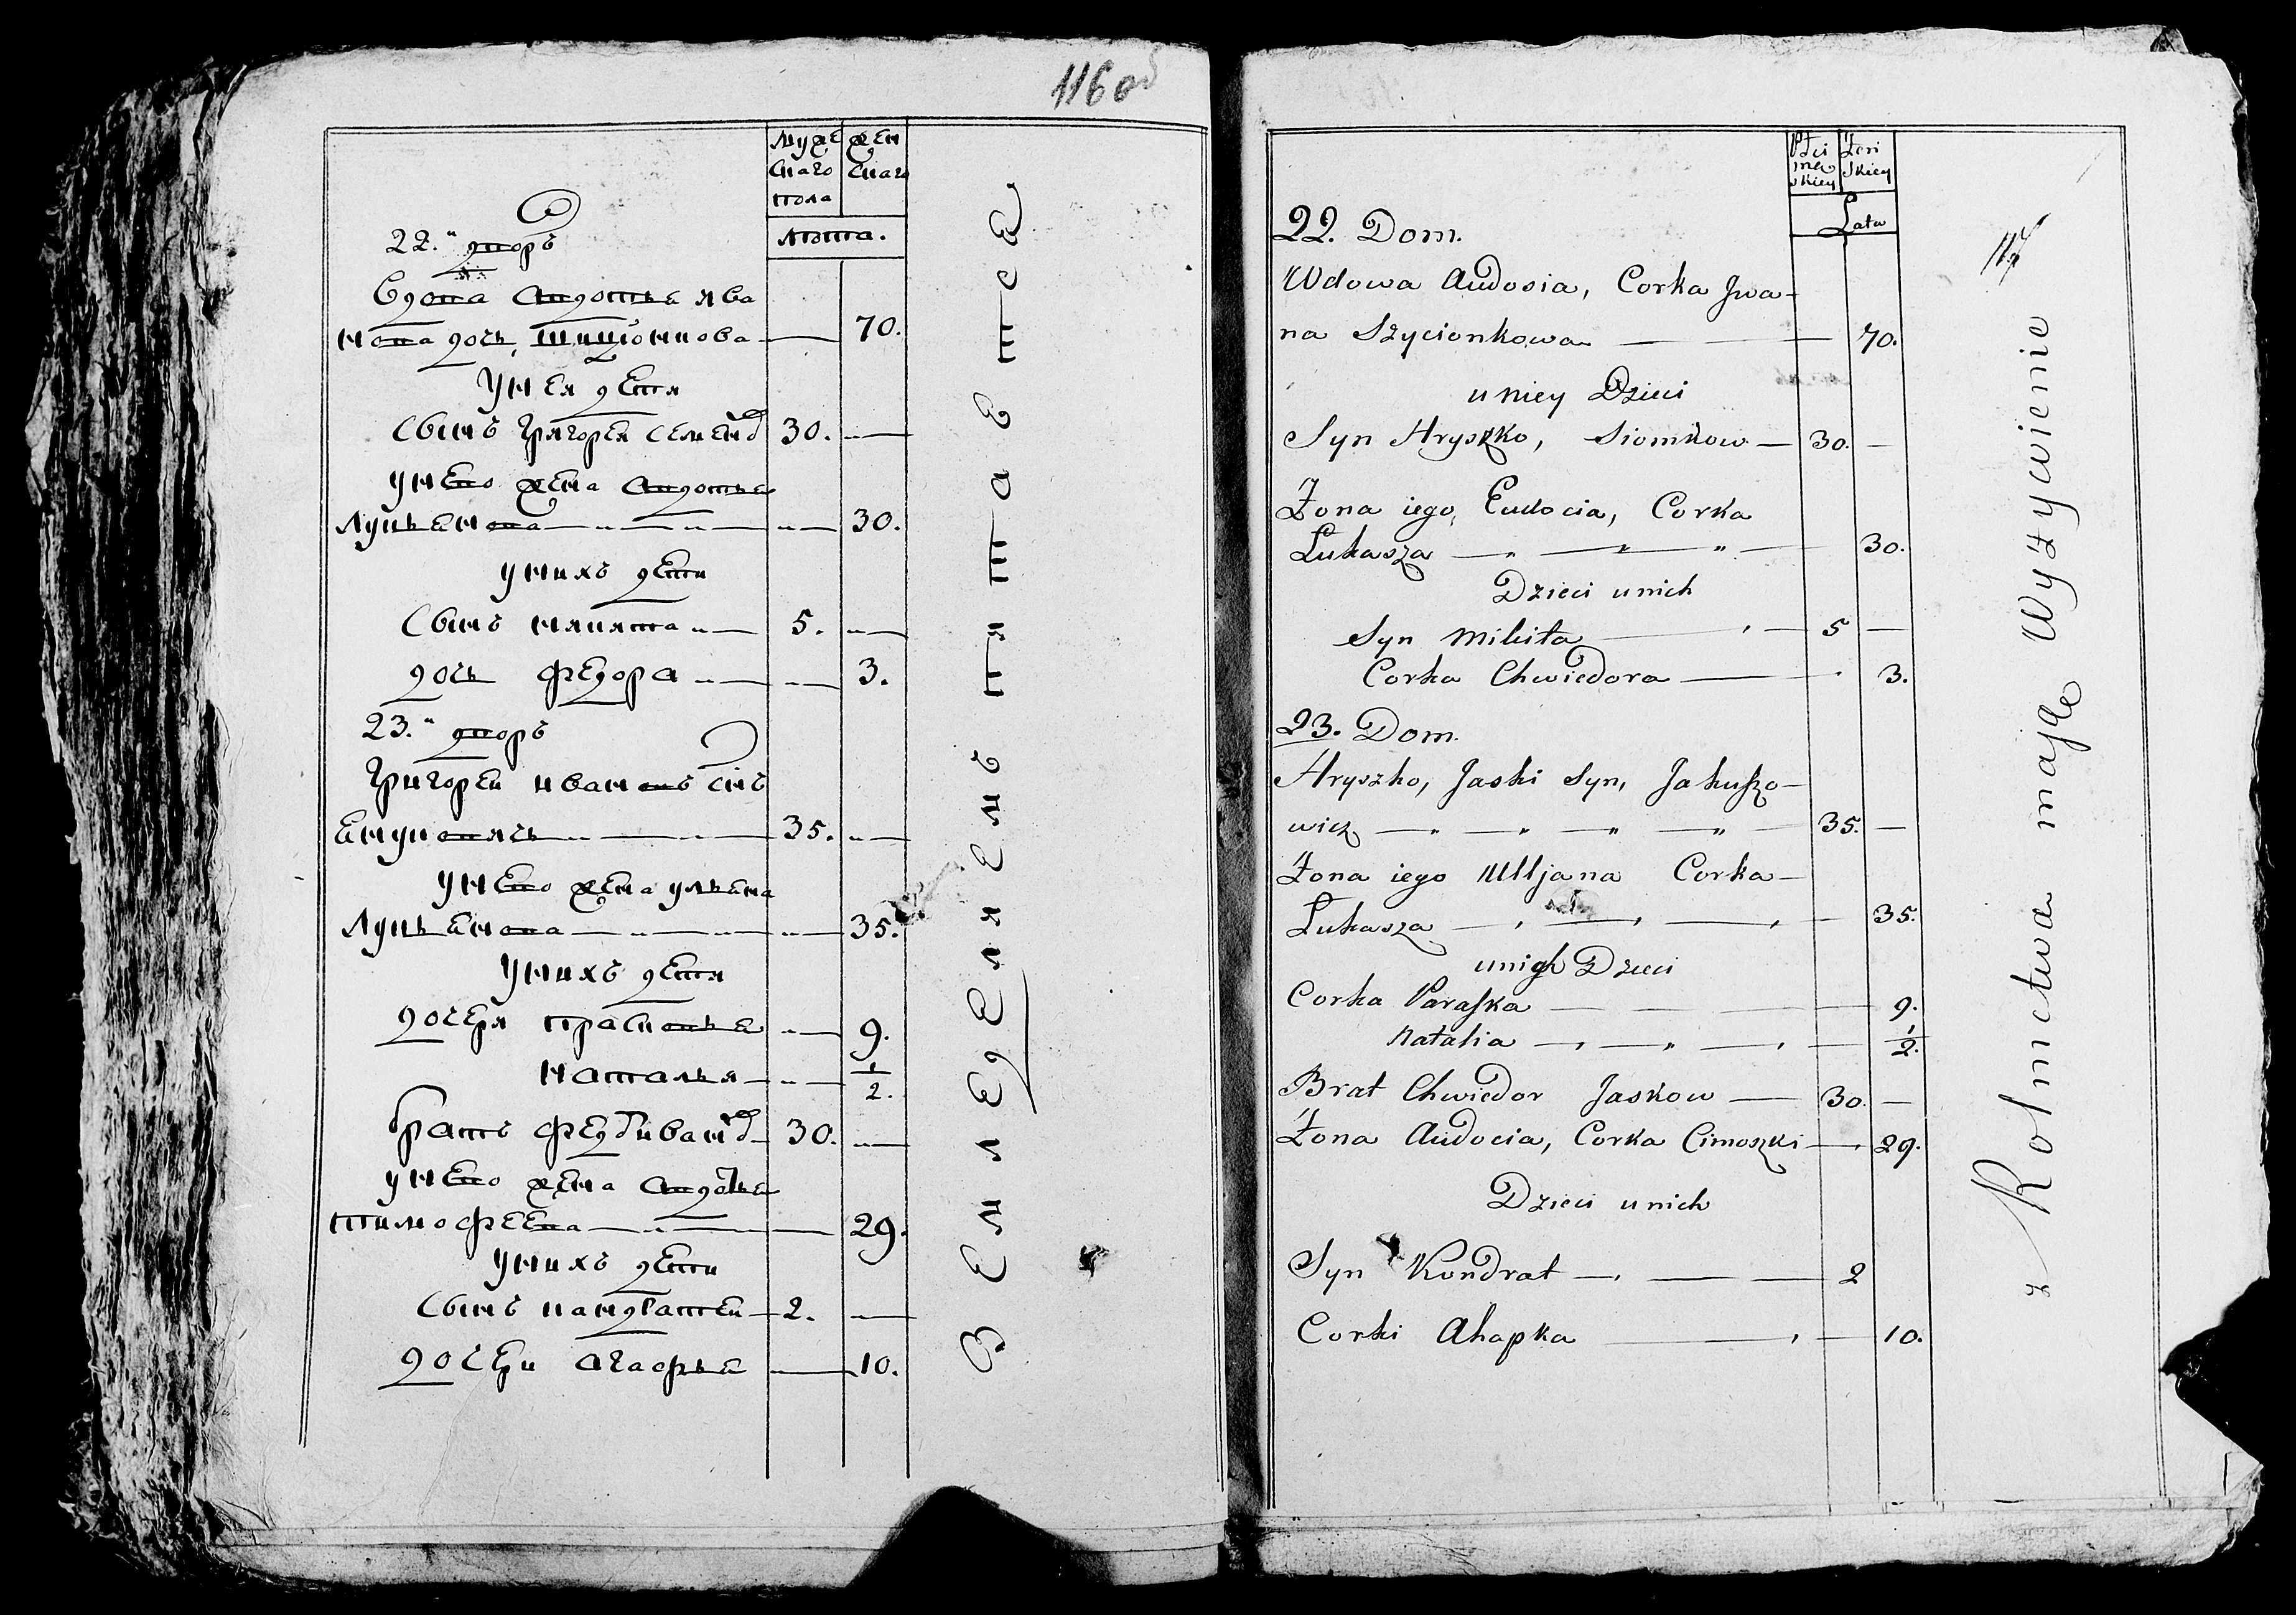 116 об
мужескаго пола
женскаго
лѣта.
22.й дворъ
вдова авдотья ива
нова дочь, шицюнкова 70.
У нея дети
сынъ григорей семенов 30.
у него жена авдотья
лукьянова 30.
у нихъ дети
сынъ никита 5.
дочь федора 3.
23.й дворъ
Григорей ивановъ снъ
у него жена ульяна
лукьянова 35.
У нихъ дети
дочери прасковья 9.
наталья 1/2.
братъ федор иванов 30.
у него жена авдотья
тимофеева 29.
у нихъ дети
сынъ кандратей 2.
дочери агафья 10.
Земледелием питается
117
Płci męskiey
Żeńskiey
Lata
22. Dom.
Wdowa Audosia, Corka Jwa-
na Szycionkowa 70.
u niey Dzieci
Syn Hryszko, Siomkow 30.
Żona iego, Eudocia, Corka
Łukasza 30.
Dzieci u nich
Syn Mikita 5
Corka Chwiedora 3.
23. Dom.
Hryszko, Jaski Syn, Jakuszo-
wicz 35.
Żona iego Ulljana Corka
Łukasza 35.
u nich Dzieci
Corka Paraska 9.
Natalia 1/2.
Brat Chwiedor Jaskow 30.
Żona Audocia, Corka Cimoszki 29.
Dzieci u nich
Syn Kondrat 2
Corki Ahapka 10.
z Rolnictwa maję Wyżywienie